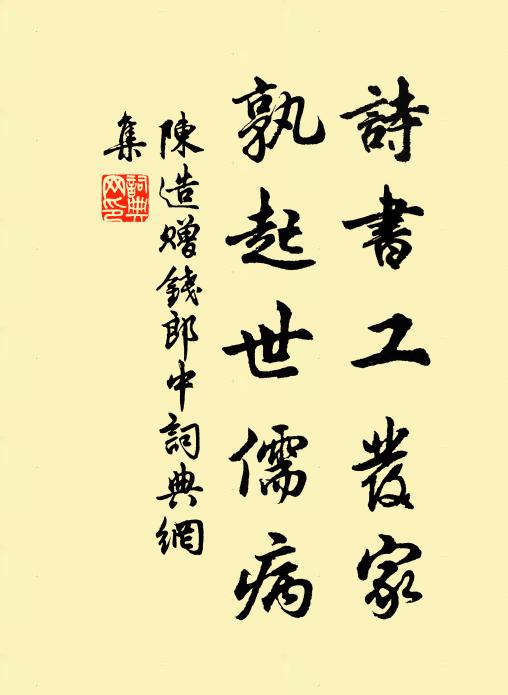 詩書工發家
孰起世儒病
陳造贈錢郎中詞典網
集
詞典
网印